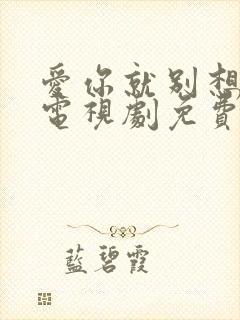 愛你就別想
電視劇免費
藍碧霞